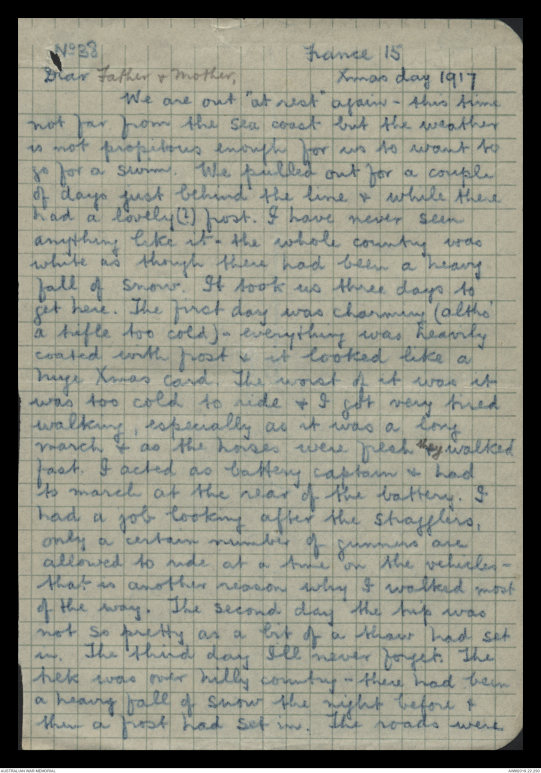 No 38 France 15
Dear Father & Mother, Xmas day 1917
We are out "at rest" again - this time
not far from the sea coast but the weather
is not propitous enough for us to want to
go for a swim. We pulled out for a couple
of days just behind the line & while there
had a lovely (?) frost. I have never seen
anything like it - the whole country was
white as though there had been a heavy
fall of snow. It took us three days to
get here. The first day was charming (altho'
a trifle too cold) - everything was heavily
coated with frost & it looked like a
huge Xmas card. The worst of it was it
was too cold to ride & I got very tired
walking, especially as it was a long
march & as the horses were fresh they walked
fast. I acted as battery captain & had
to march at the rear of the battery. I
had a job looking after the stragglers,
only a certain number of gunners are
allowed to ride at a time on the vehicles -
that is another reason why I walked most
of the way. The second day the trip was
not so pretty as a bit of a thaw had set
in. The third day I'll never forget. The
trek was over hilly country - there had been
a heavy fall of snow the night before &
then a frost had set in. The roads were
AUSTRALIAN WAR MEMORIAL